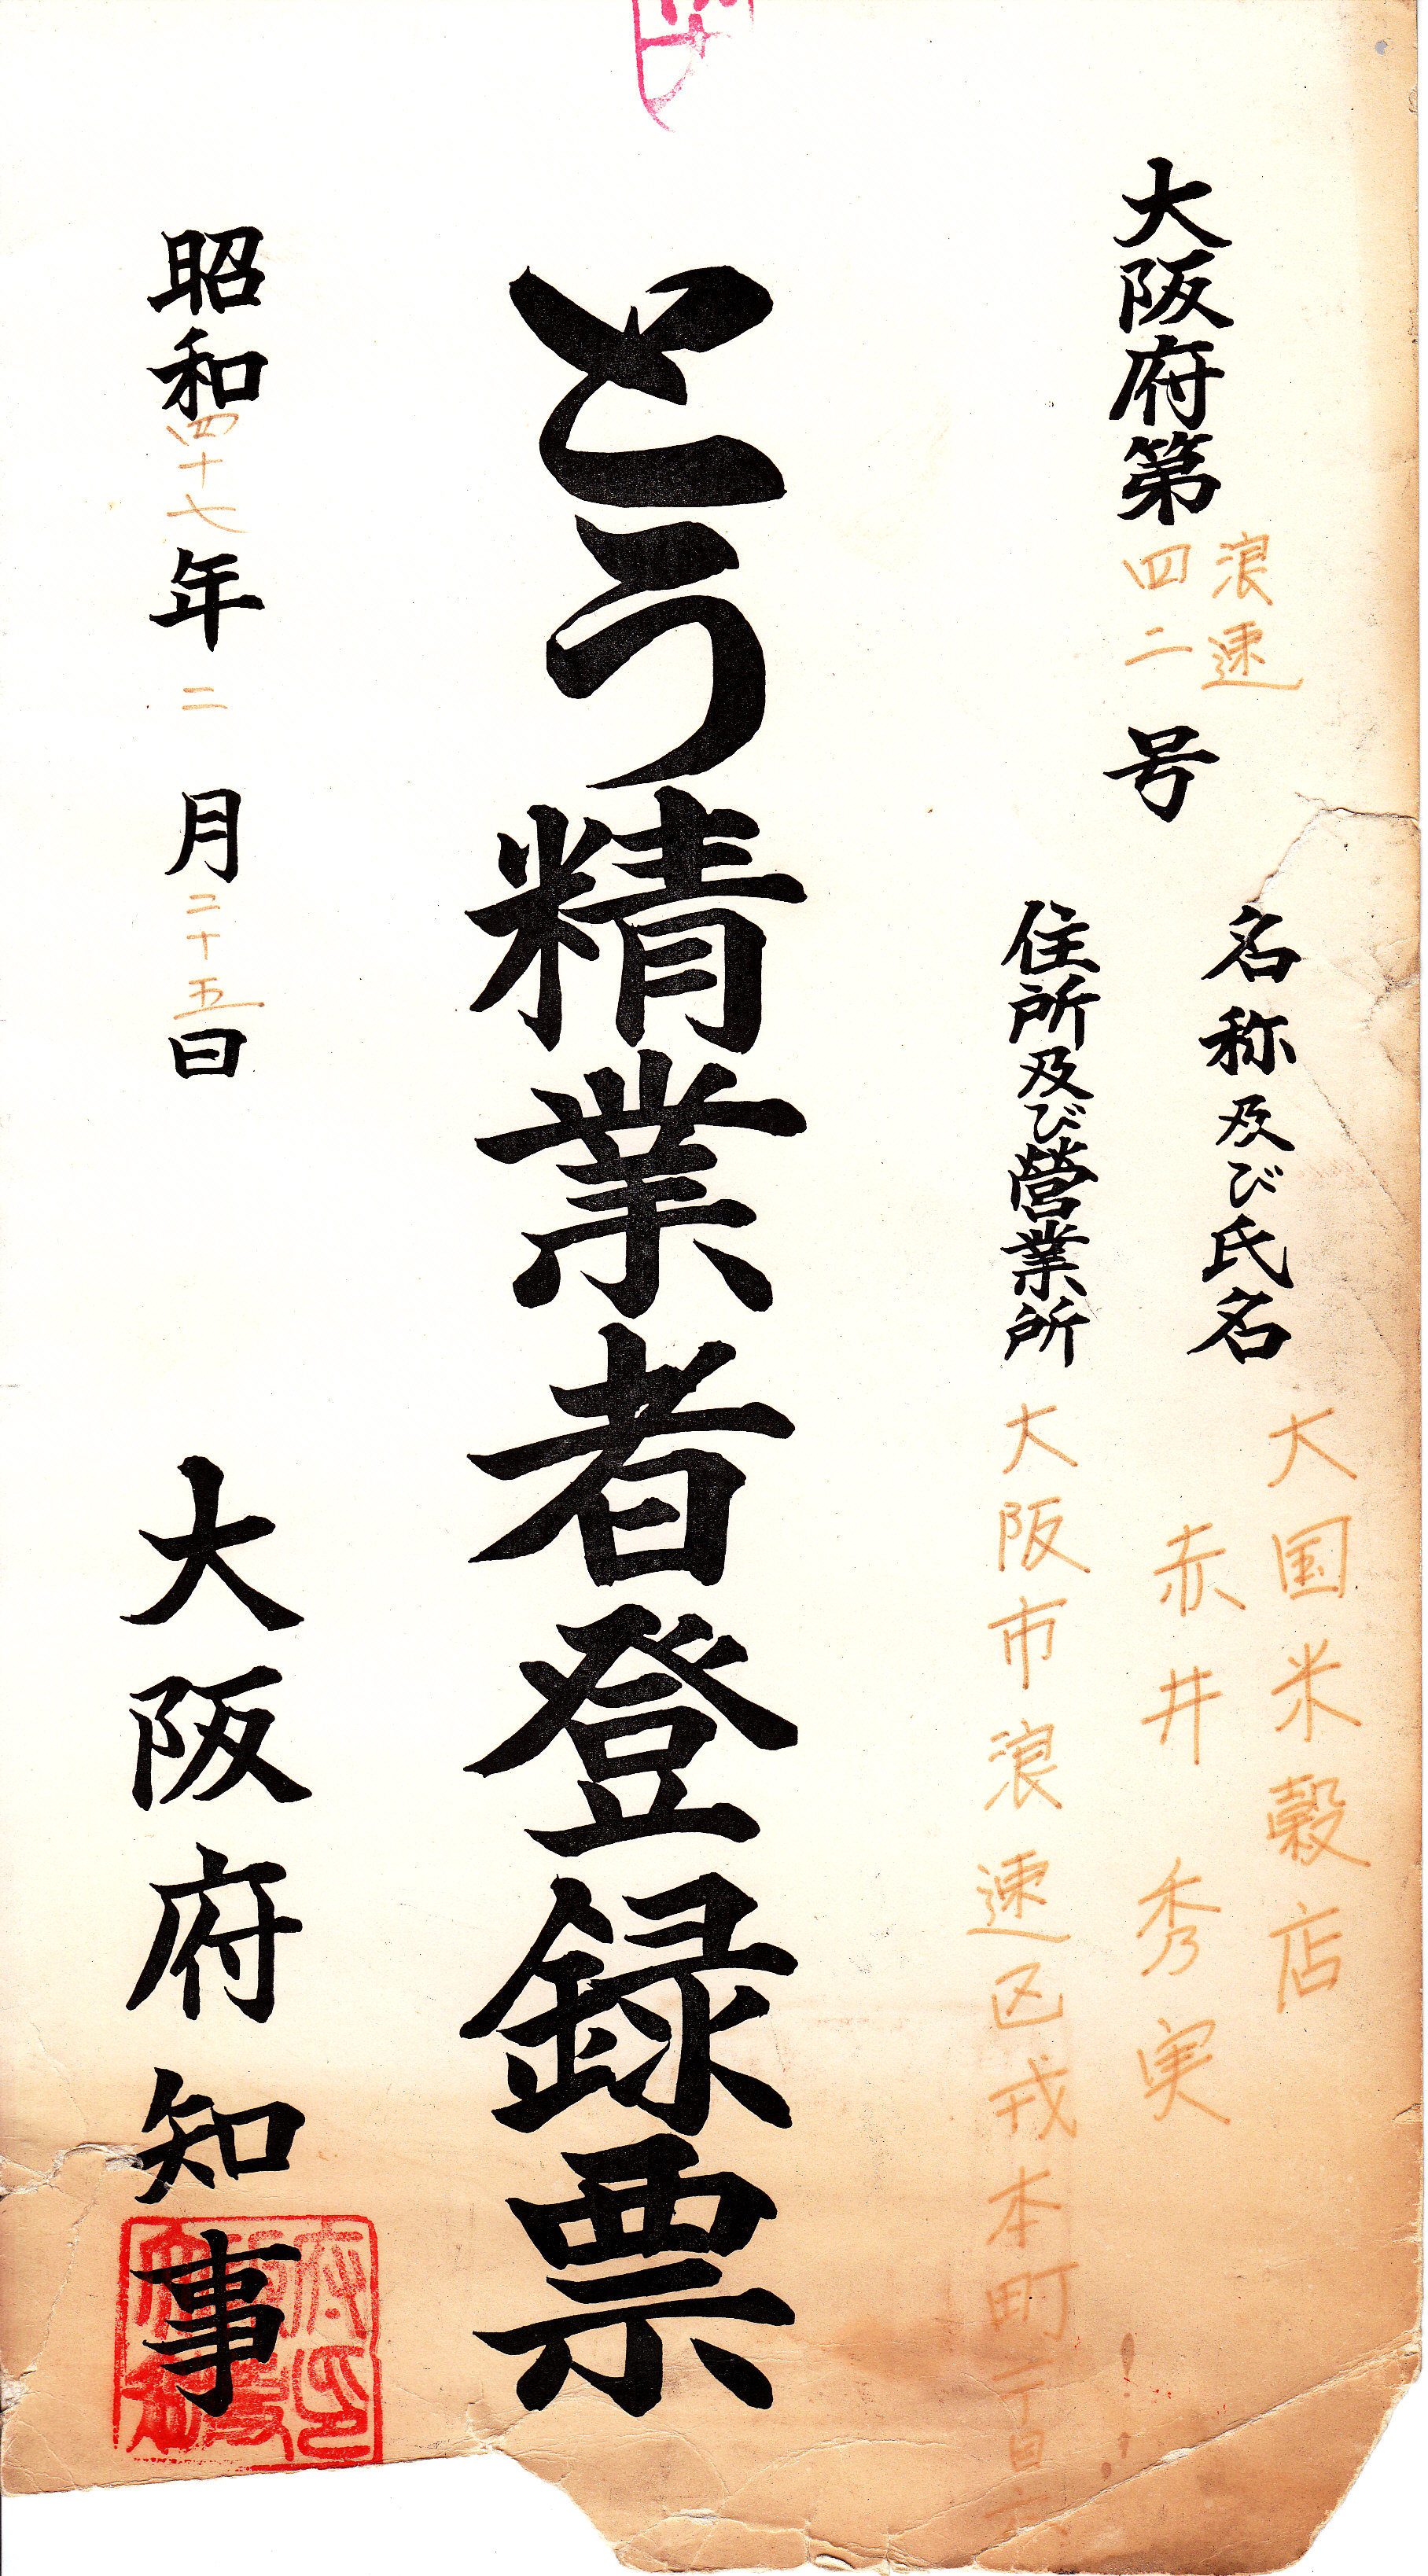 大阪府第浪速四二号
名称及び氏名 大国米穀店
赤井秀実
住所及び営業所 大阪市浪速区戎本町二丁目六
とう精業者登録票
昭和四十七年二月二十五日
大阪府知事